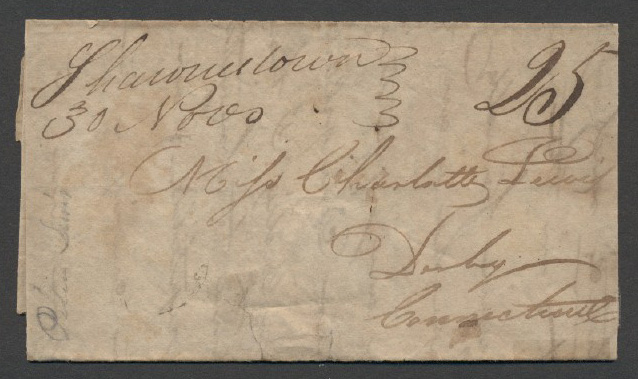 Shawneetown
30 Novr 25
Miss Charlotte Lewis
Derby
Connecticut